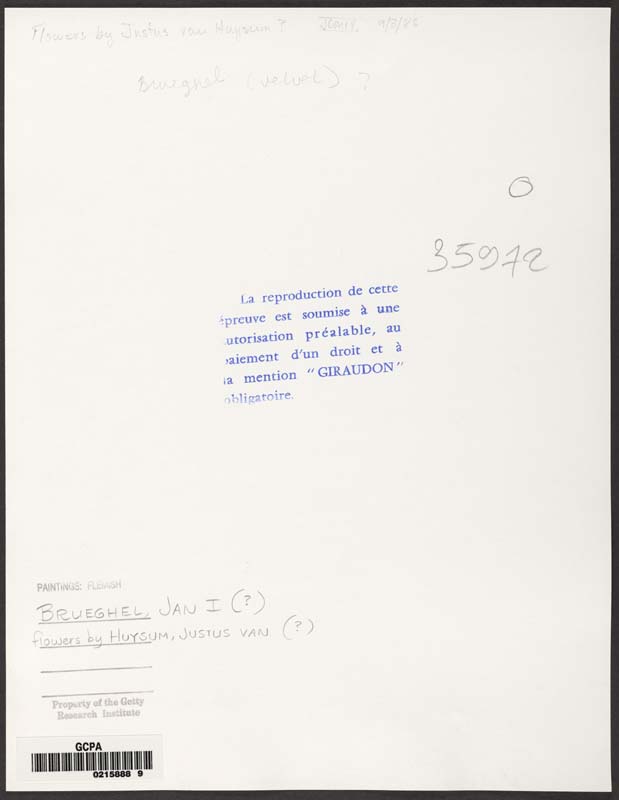 Flowers by Justus van Huysum?
Brueghel (velvet) ?
O
35972
La reproduction de cette
épreuve est soumise à une
utorisation préalable, au
paiement d'un droit et à
la mention "GIRAUDON"
obligatoire.
PAINTINGS: FLEMISH
BRUEGHEL, JAN I (?)
flowers by HUYSUM, JUSTUS VAN (?)
Property of the Getty
Research Institute
GCPA
0215888 9